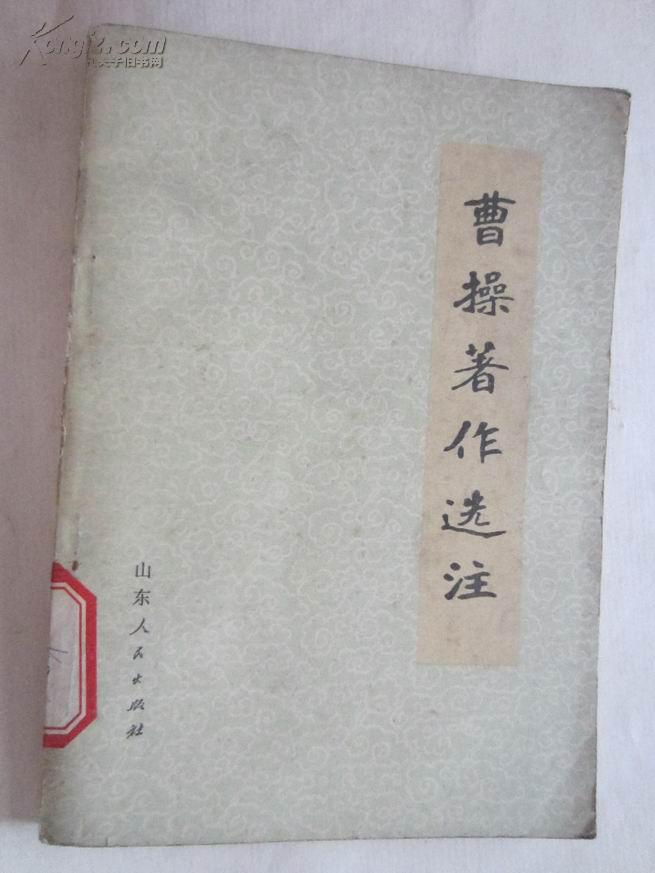 Kongfz.com
孔夫子旧书网
曹操著作选注
山东人民出版社